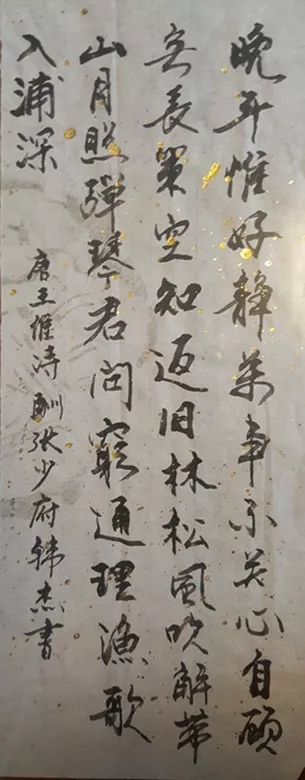 晚年惟好静万事不关心自顾
无长策空知返旧林松风吹解带
山月照弹琴君问穷通理渔歌
入浦深
唐王惟诗酬张少府韩杰书